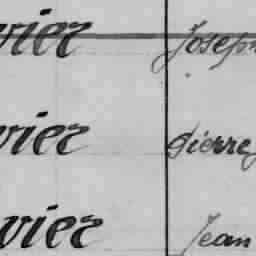 vier Joseph
vier Pierre
vier Jean